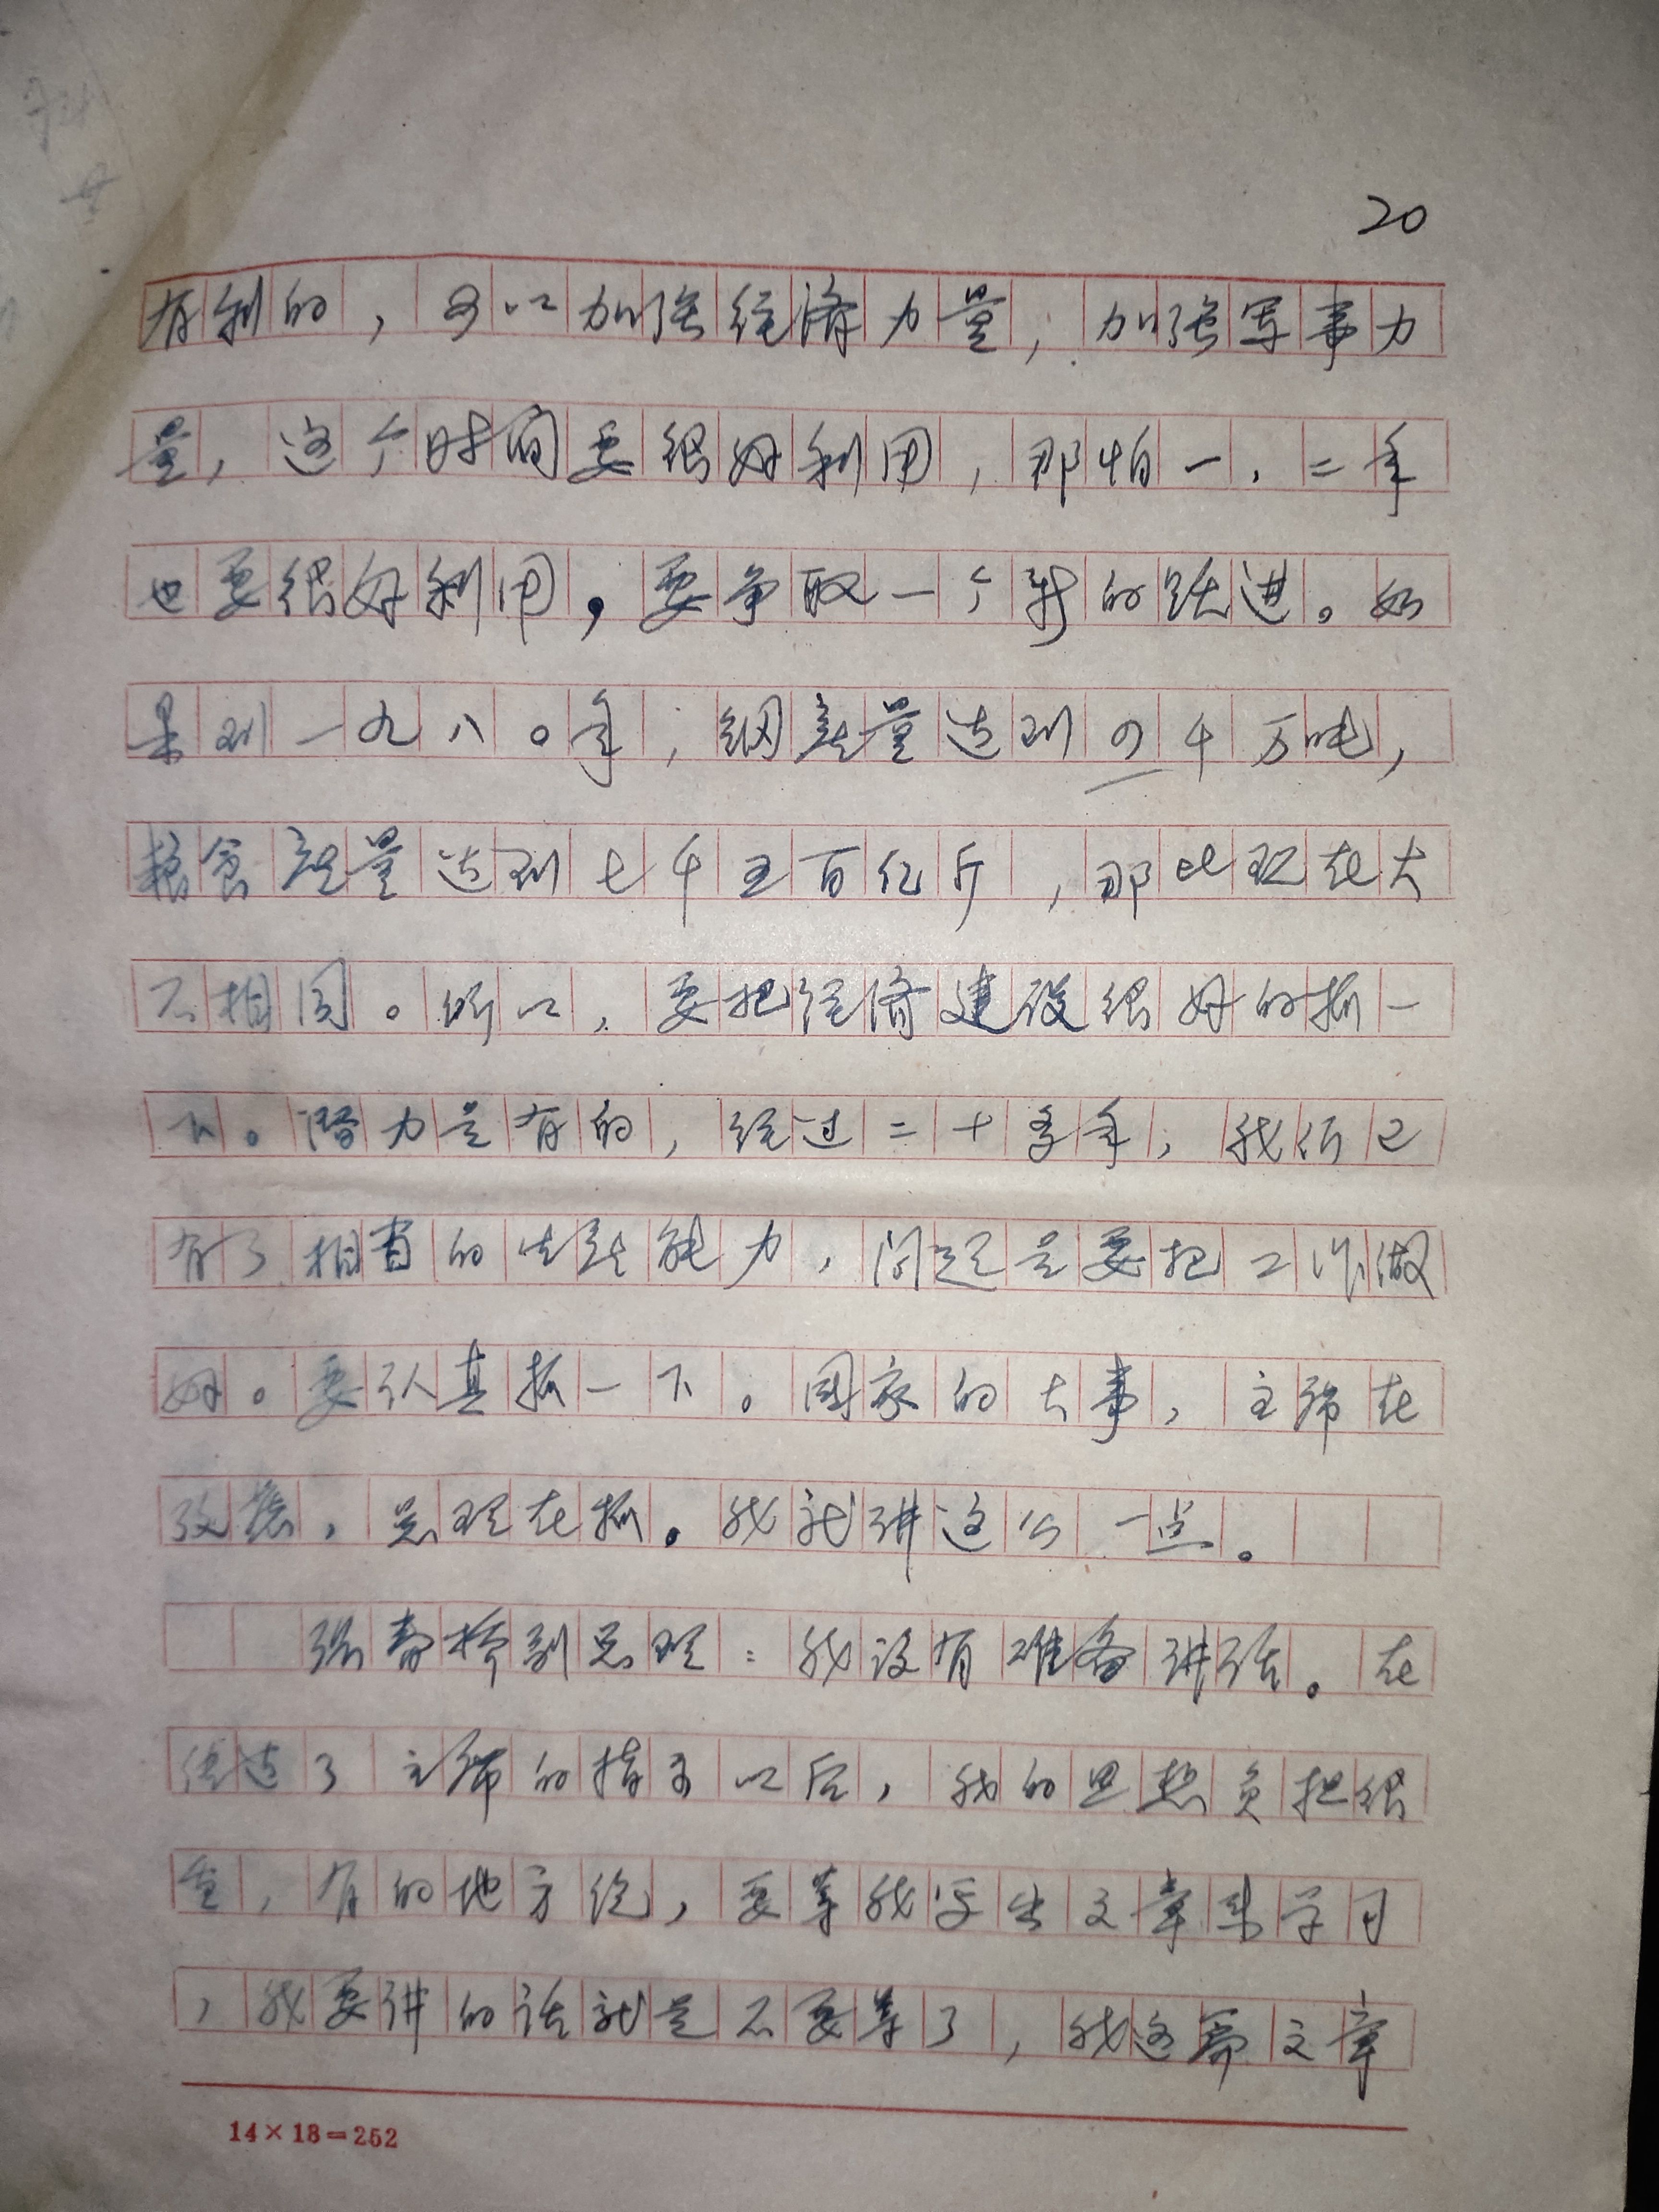 20
有利的，可以加强经济力量，加强军事力
量，这个时间要很好利用，那怕一、二年
也要很好利用，要争取一个新的跃进。如
果到一九八〇年，钢产量达到四千万吨，
粮食产量达到七千五百亿斤，那比现在大
不相同。所以，要把经济建设很好的抓一
下。潜力是有的，经过二十多年，我们已
有了相当的生产能力，问题是要把工作做
好。要认真抓一下。国家的大事，主席在
改造，总理在抓。我就讲这么一点。
张春桥副总理：我没有准备讲话。在
传达了主席的指示以后，我的思想负担很
重，有的地方说，要等我写出文章来学习
，我要讲的话就是不要等了，我这篇文章
14×18=252